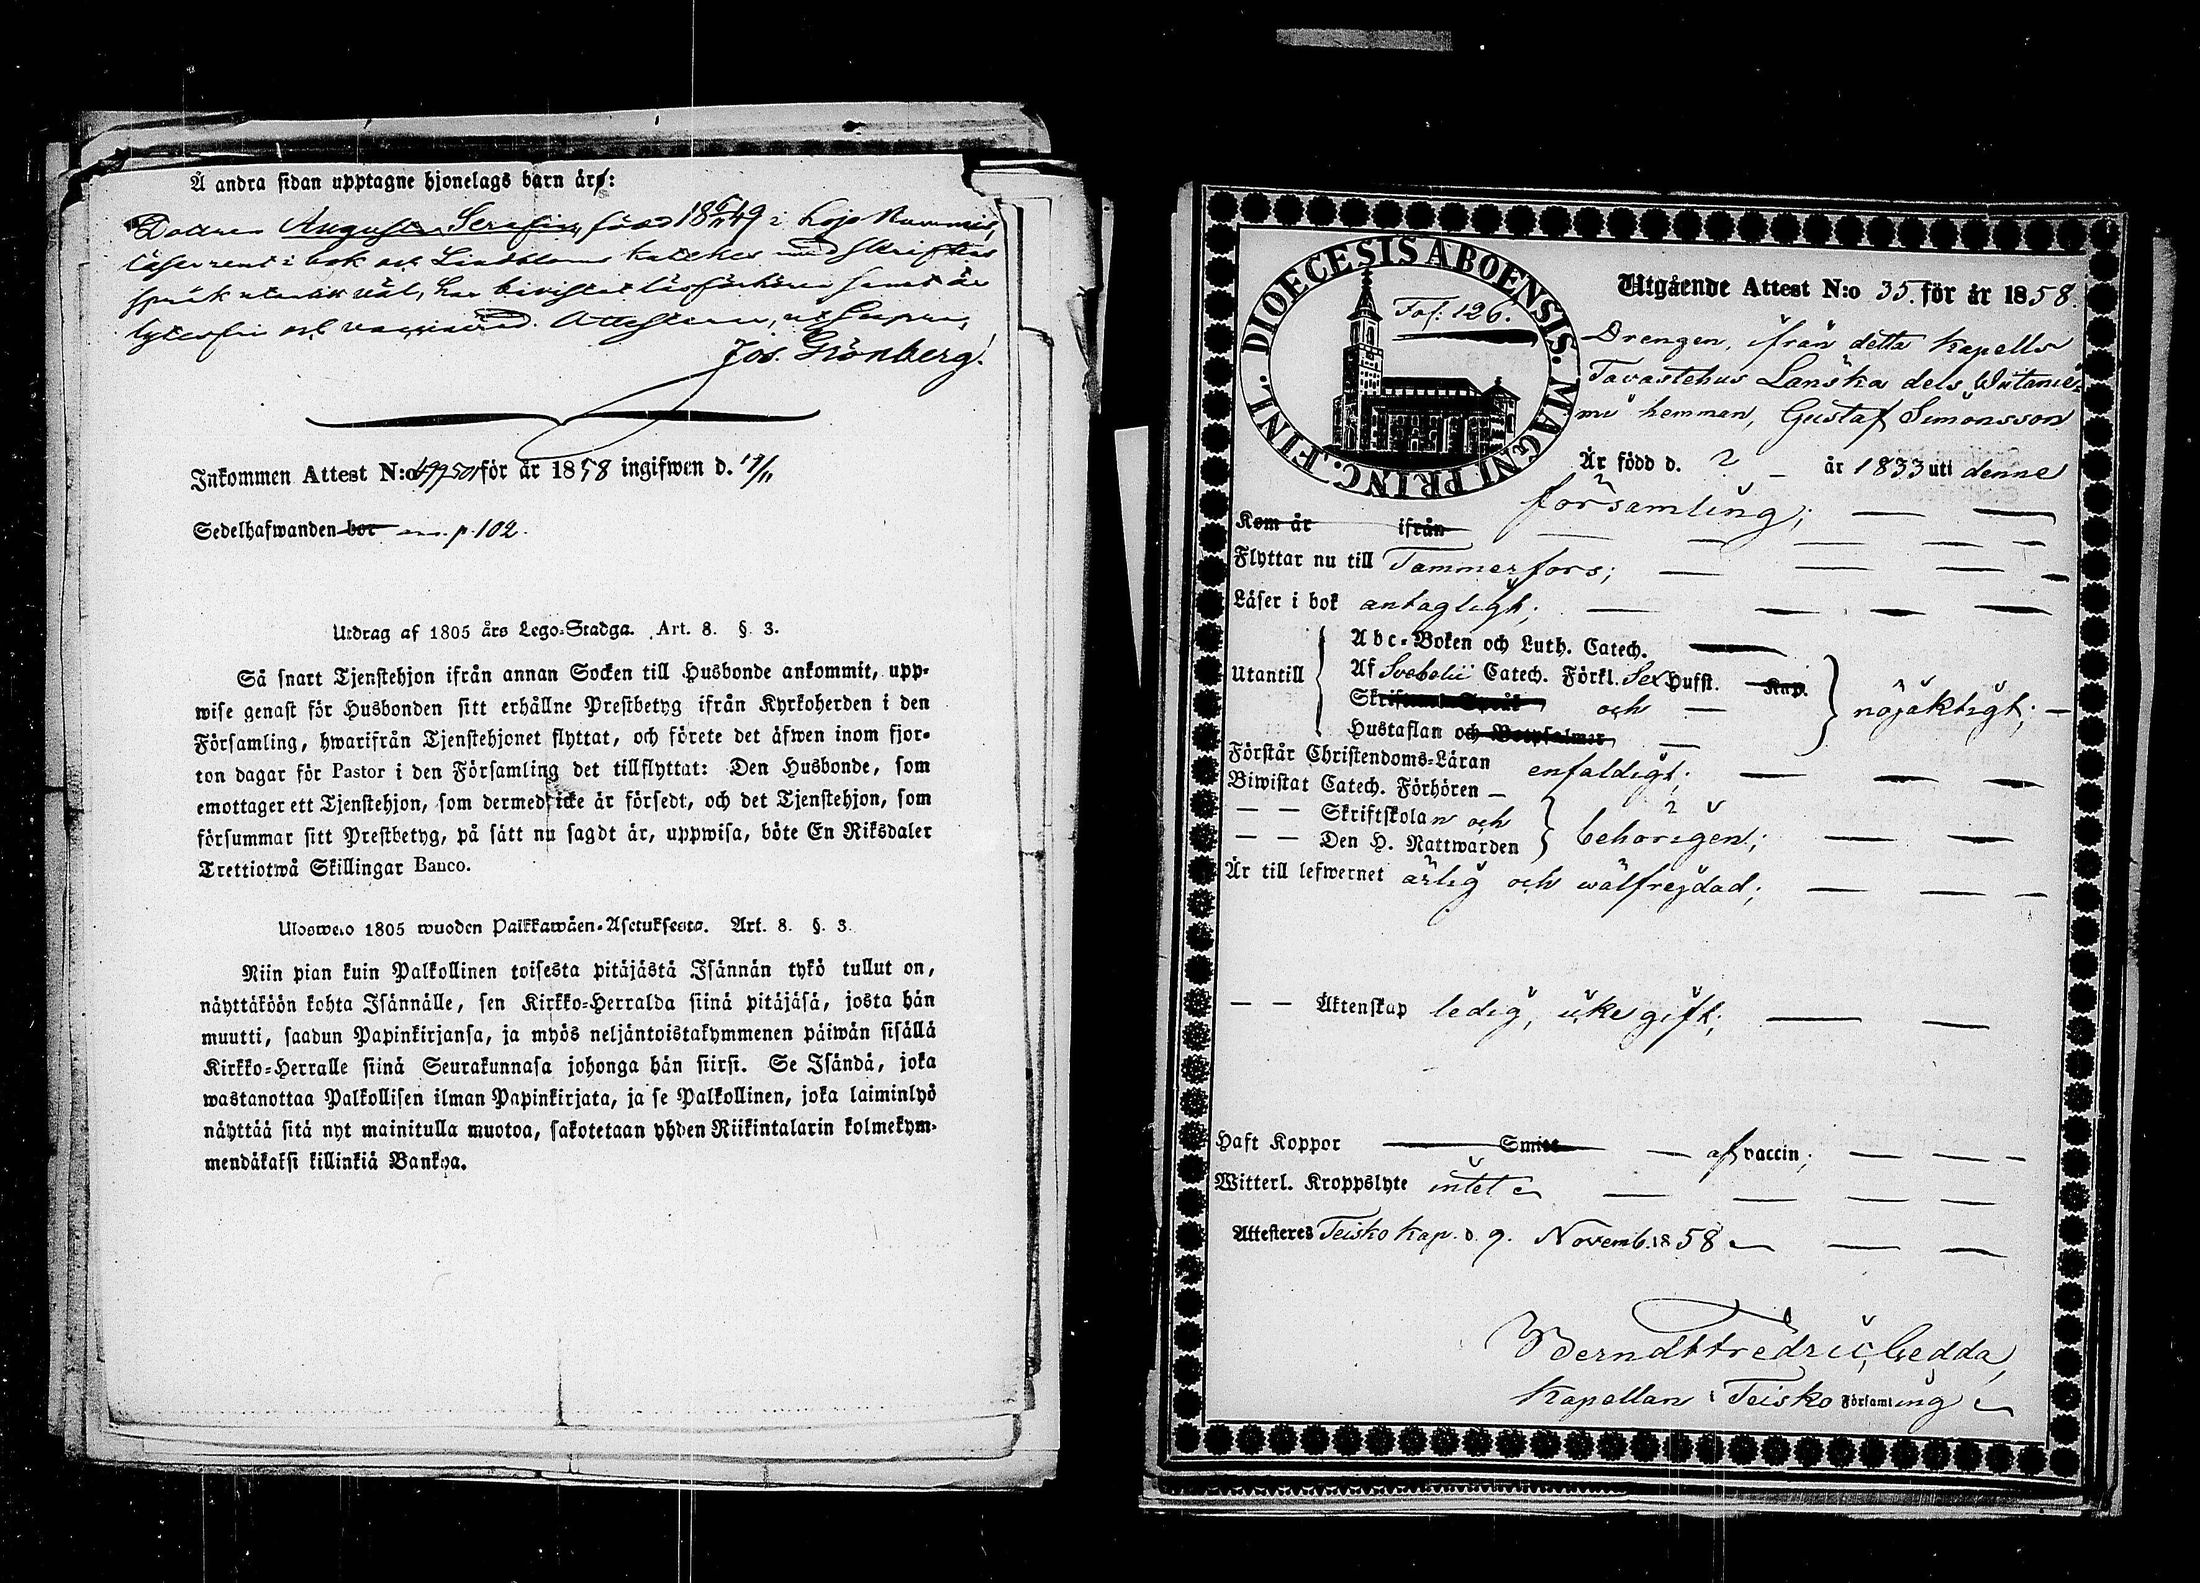 Å andra sidan upptagne hjonelags barn är:
Dottren Augusta Serafina, född 18 49 i Lojo Nummis,
läser rent i bok och Lindbloms katekes med skriftens
språk utantill väl, har bivistat läsförhören samt är
lytesfri och vaccinerad. Attesterar
Jos. Grönberg.
Inkommen Attest N:o för år 1858 ingifwen d. 19/11
Sedelhafwanden bor p. 102.
Utdrag af 1805 års Lego-Stadga. Art. 8. §. 3.
Så snart Tjenstehjon ifrån annan Socken till Husbonde ankommit, upp-
wise genast för Husbonden sitt erhållne Prestbetyg ifrån Kyrkoherden i den
Församling, hwarifrån Tjenstehjonet flyttat, och förete det äfwen inom fjor-
ton dagar för Pastor i den Församling det tillflyttat: Den Husbonde, som
emottager ett Tjenstehjon, som dermed icke är försedt, och det Tjenstehjon, som
försummar sitt Prestbetyg, på sätt nu sagdt är, uppwisa, böte En Riksdaler
Trettiotwå Skillingar Banco.
Ulosweto 1805 wuoden Palkkawäen-Asetuksesta. Art. 8. §. 3.
Niin pian kuin Palkollinen toisesta pitäjästä Isännän tykö tullut on,
näyttäköön kohta Isännälle, sen Kirkko-Herralda siinä pitäjäsä, josta hän
muutti, saadun Papinkirjansa, ja myös neljäntoistakymmenen päiwän sisällä
Kirkko-Herralle siinä Seurakunnasa johonga hän siirsi. Se Isändä, joka
wastanottaa Palkollisen ilman Papinkirjata, ja se Palkollinen, joka laiminlyö
näyttää sitä nyt mainitulla muotoa, sakotetaan yhden Riikintalarin kolmekym-
mendäkaksi killinkiä Bankoa.
DIOECESIS ABOENSIS. MAGNI PRINC. FINL.
Fol: 126.
Utgående Attest N:o 35. för år 1858.
Drengen, ifrån detta Kapells
Tavastehus Länska dels Wiitanie-
mi hemman, Gustaf Simonsson
Är född d. 2 – år 1833 uti denne
församling;
Kom år ifrån
Flyttar nu till Tammerfors;
Läser i bok antagligt;
Abc-Boken och Luth. Catech.
Utantill Af Svebelii Catech. Förkl. Sex Hufst. Kap.
Skriftens Språk och nöjaktigt;
Hustaflan och Botpsalmer
Förstår Christendoms-Läran enfaldigt;
Biwistat Catech. Förhören –
– – Skriftskolan och
– – Den H. Nattwarden behörigen;
Är till lefwernet ärlig och wälfrejdad;
– – Äktenskap ledig, icke gift;
Haft Koppor Smitt – af vaccin;
Witterl. Kroppslyte intet
Attesteres Teisko Kap. d. 9. Novemb. 1858
Berndt Fredric Gedda,
Kapellan i Teisko Församling